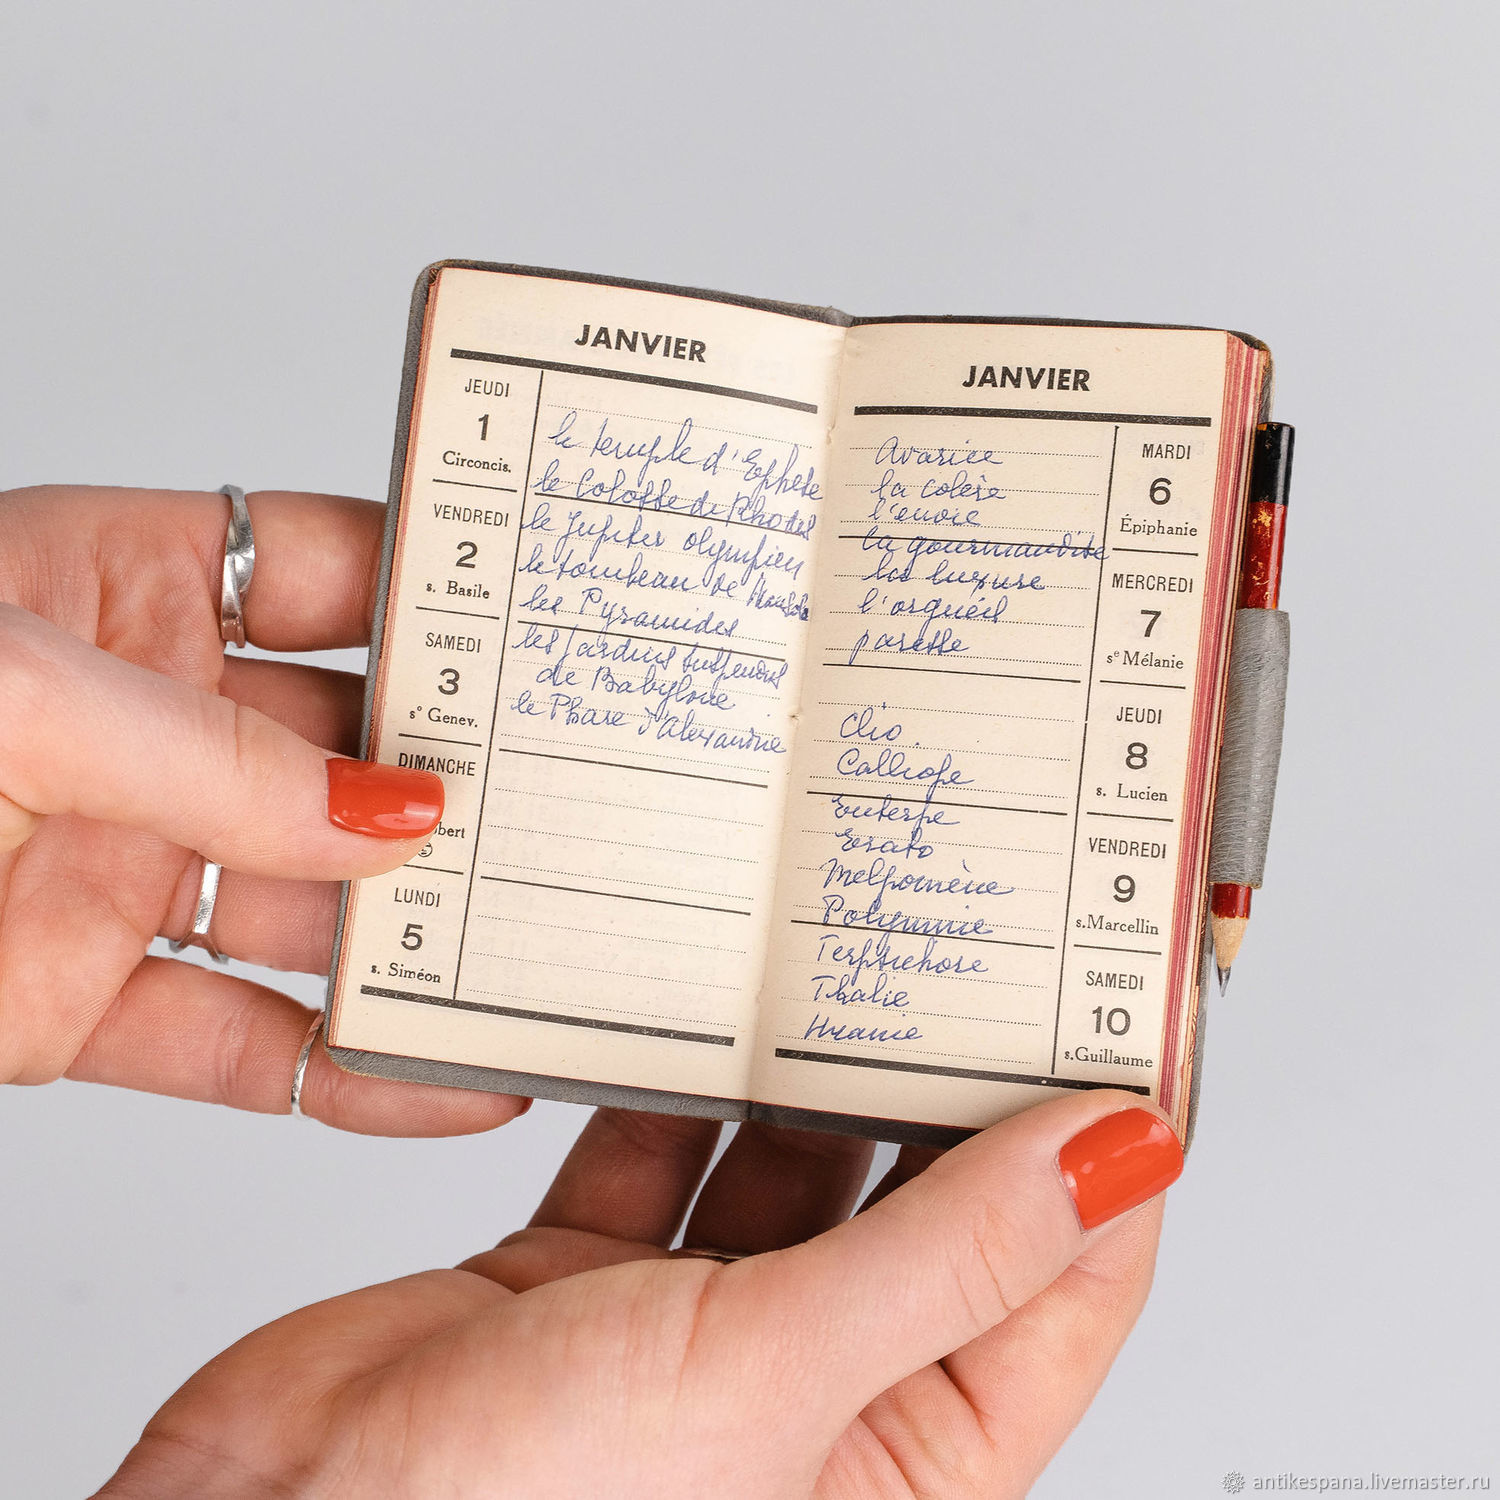 JANVIER
JEUDI
1
Circoncis.
VENDREDI
2
s. Basile
SAMEDI
3
sᵉ Genev.
DIMANCHE
bert
LUNDI
5
s. Siméon
le temple d'Ephèse
le Colosse de Rhodes
le Jupiter olympien
le tombeau de Mausole
les Pyramides
les Jardins suspendus
de Babylone
le Phare d'Alexandrie
JANVIER
Avarice
la colère
l'envie
la gourmandise
la luxure
l'orgueil
paresse
Clio
Calliope
Euterpe
Erato
Melpomène
Polymnie
Terpsichore
Thalie
Uranie
MARDI
6
Épiphanie
MERCREDI
7
sᵉ Mélanie
JEUDI
8
s. Lucien
VENDREDI
9
s. Marcellin
SAMEDI
10
s. Guillaume
antikespana.livemaster.ru